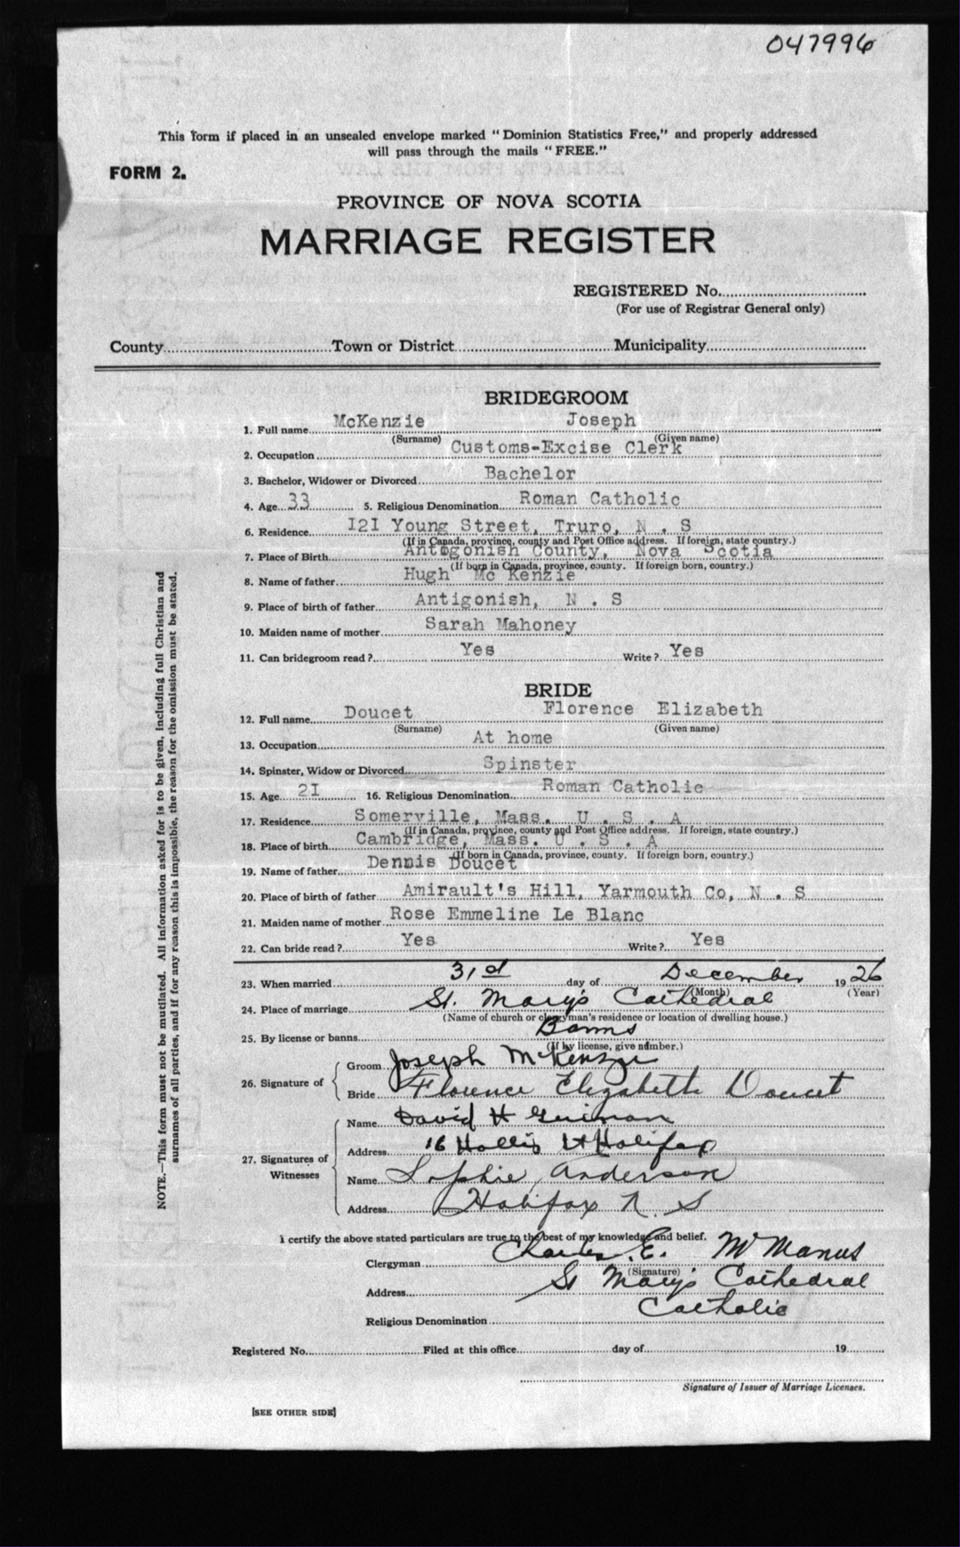 047996
This form if placed in an unsealed envelope marked "Dominion Statistics Free," and properly addressed
will pass through the mails "FREE."
FORM 2.
PROVINCE OF NOVA SCOTIA
MARRIAGE REGISTER
REGISTERED No.
(For use of Registrar General only)
County Town or District Municipality
BRIDEGROOM
1. Full name McKenzie Joseph
(Surname) (Given name)
2. Occupation Customs-Excise Clerk
3. Bachelor, Widower or Divorced Bachelor
4. Age 33 5. Religious Denomination Roman Catholic
6. Residence I2I Young Street, Truro, N . S
(If in Canada, province, county and Post Office address. If foreign, state country.)
7. Place of Birth Antogonish County, Nova Scotia
(If born in Canada, province, county. If foreign born, country.)
8. Name of father Hugh Mc Kenzie
9. Place of birth of father Antigonish, N . S
10. Maiden name of mother Sarah Mahoney
11. Can bridegroom read? Yes Write? Yes
BRIDE
12. Full name Doucet Florence Elizabeth
(Surname) (Given name)
13. Occupation At home
14. Spinster, Widow or Divorced Spinster
15. Age 2I 16. Religious Denomination Roman Catholic
17. Residence Somerville, Mass. U . S . A
(If in Canada, province, county and Post Office address. If foreign, state country.)
18. Place of birth Cambridge, Mass. U . S . A
(If born in Canada, province, county. If foreign born, country.)
19. Name of father Dennis Doucet
20. Place of birth of father Amirault's Hill, Yarmouth Co, N . S
21. Maiden name of mother Rose Emmeline Le Blanc
22. Can bride read? Yes Write? Yes
23. When married 31st day of December 1926
(Month) (Year)
24. Place of marriage St. Mary's Cathedral
(Name of church or clergyman's residence or location of dwelling house.)
25. By license or banns Banns
(If by license, give number.)
26. Signature of
Groom Joseph McKenzie
Bride Florence Elizabeth Doucet
27. Signatures of Witnesses
Name David H
Address 16 Hollis St Halifax
Name Sophie Anderson
Address Halifax N. S
I certify the above stated particulars are true to the best of my knowledge and belief.
Clergyman Charles E. McManus
(Signature)
Address St Mary's Cathedral
Religious Denomination Catholic
Registered No. Filed at this office day of 19
Signature of Issuer of Marriage Licenses.
[SEE OTHER SIDE]
NOTE.—This form must not be mutilated. All information asked for is to be given, including full Christian and
surnames of all parties, and if for any reason this is impossible, the reason for the omission must be stated.